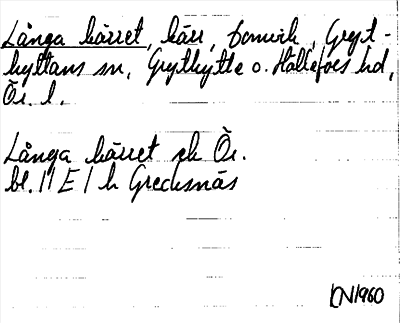 Långa kärret, kärr, Bonvik, Gryt-
hyttans sn, Grythytte o. Hällefors hd,
Ör. l.
Långa kärret ek Ör.
bl. 11 E 1 h Grecksnäs
KN1960